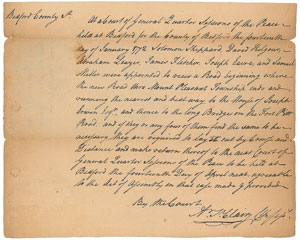 Bedford County Ss.
At a Court of General Quarter Sessions of the Peace
held at Bedford for the County of Bedford the fourteenth
day of January 1772 Solomon Sheppard, David
Abraham James Fletcher, Joseph and Samuel
Miller were appointed to view a Road beginning where
the new Road thro Mount Pleasant Township ends and
running the nearest and best way to the House of Joseph
Irwin Esqr. and thence to the Long Bridge on the Fort Pitt
Road, and if they or any four of them find the same to be
necessary they are required to lay it out by Course and
Distance and make return thereof to the next Court of
General Quarter Sessions of the Peace to be held at
Bedford the fourteenth Day of April next agreeable
to the Act of Assembly in that case made & provided
By the Court
Ar. St. Clair